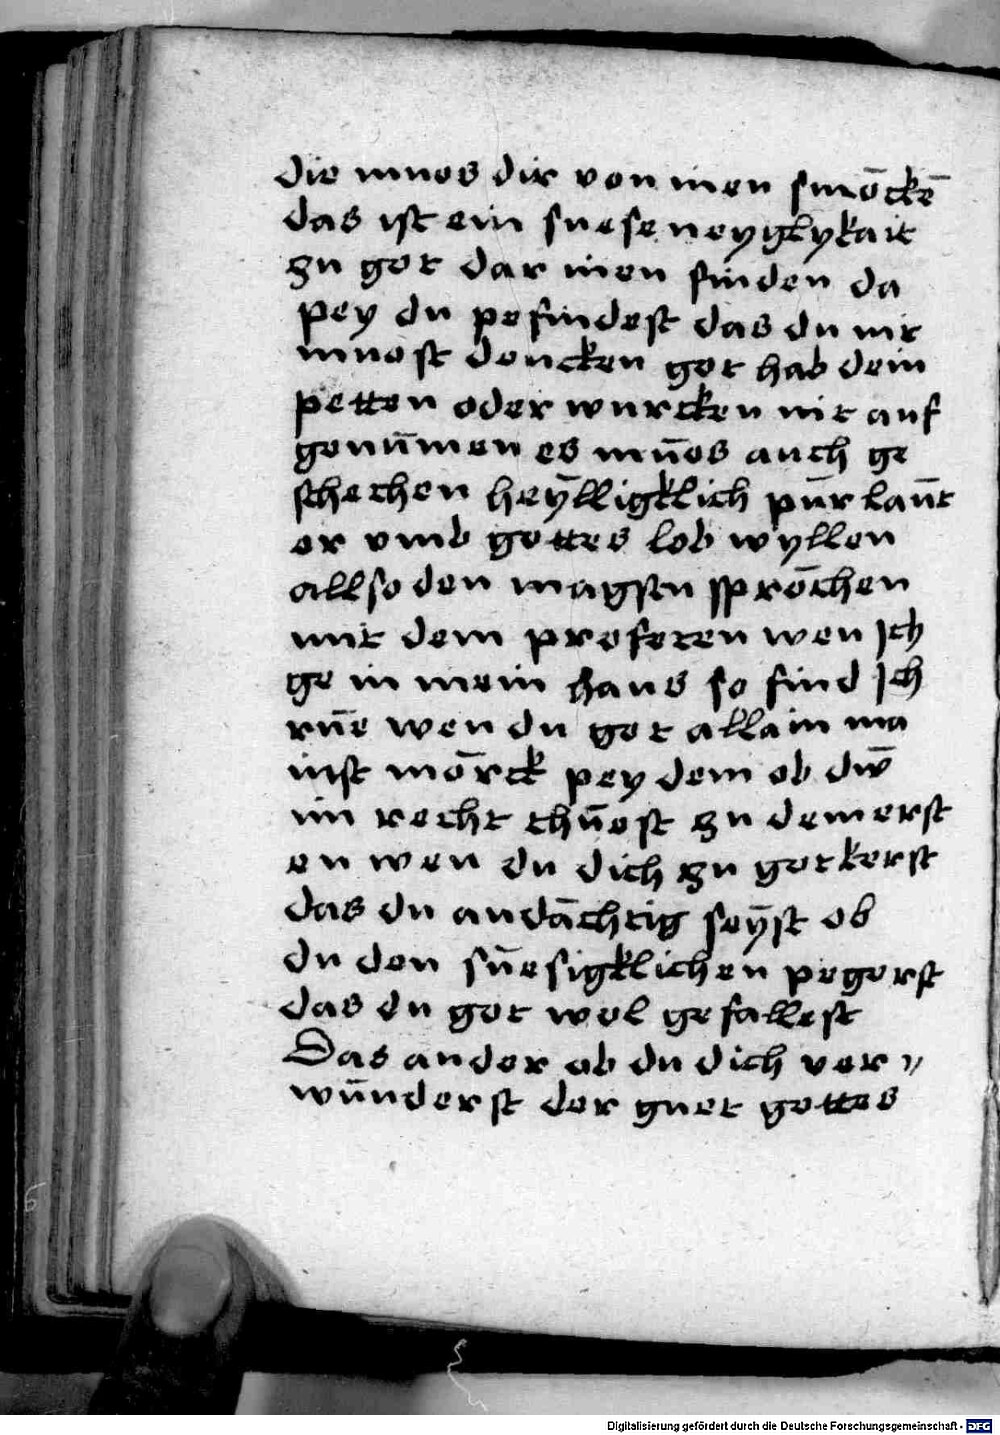 die mues dir von inen smöcken̄
das ist ein suese neyglykait
zu got dar inen finden da
pey du pefindest das du nit
muest dencken got hab dein
petten oder wurcken nit auf
genūmen es mūes auch ge
schechen heÿlligklich pūr laūt
er vmb gottes lob wyllen
allso den magstu sprōchen
mit dem profeten wen Jch
ge in mein haus so find Jch
rūe wen du got allain ma
inst mōrck pey dem ob dw̄
im recht thūest zu dem erst
en wen du dich zu got kerst
das du andāchtig seÿst ob
du den sūesigklichen pegerst
das du got wol gefallest
Das ander ob du dich ver〃
wūnderst der guet gottes
Digitalisierung gefördert durch die Deutsche Forschungsgemeinschaft - DFG